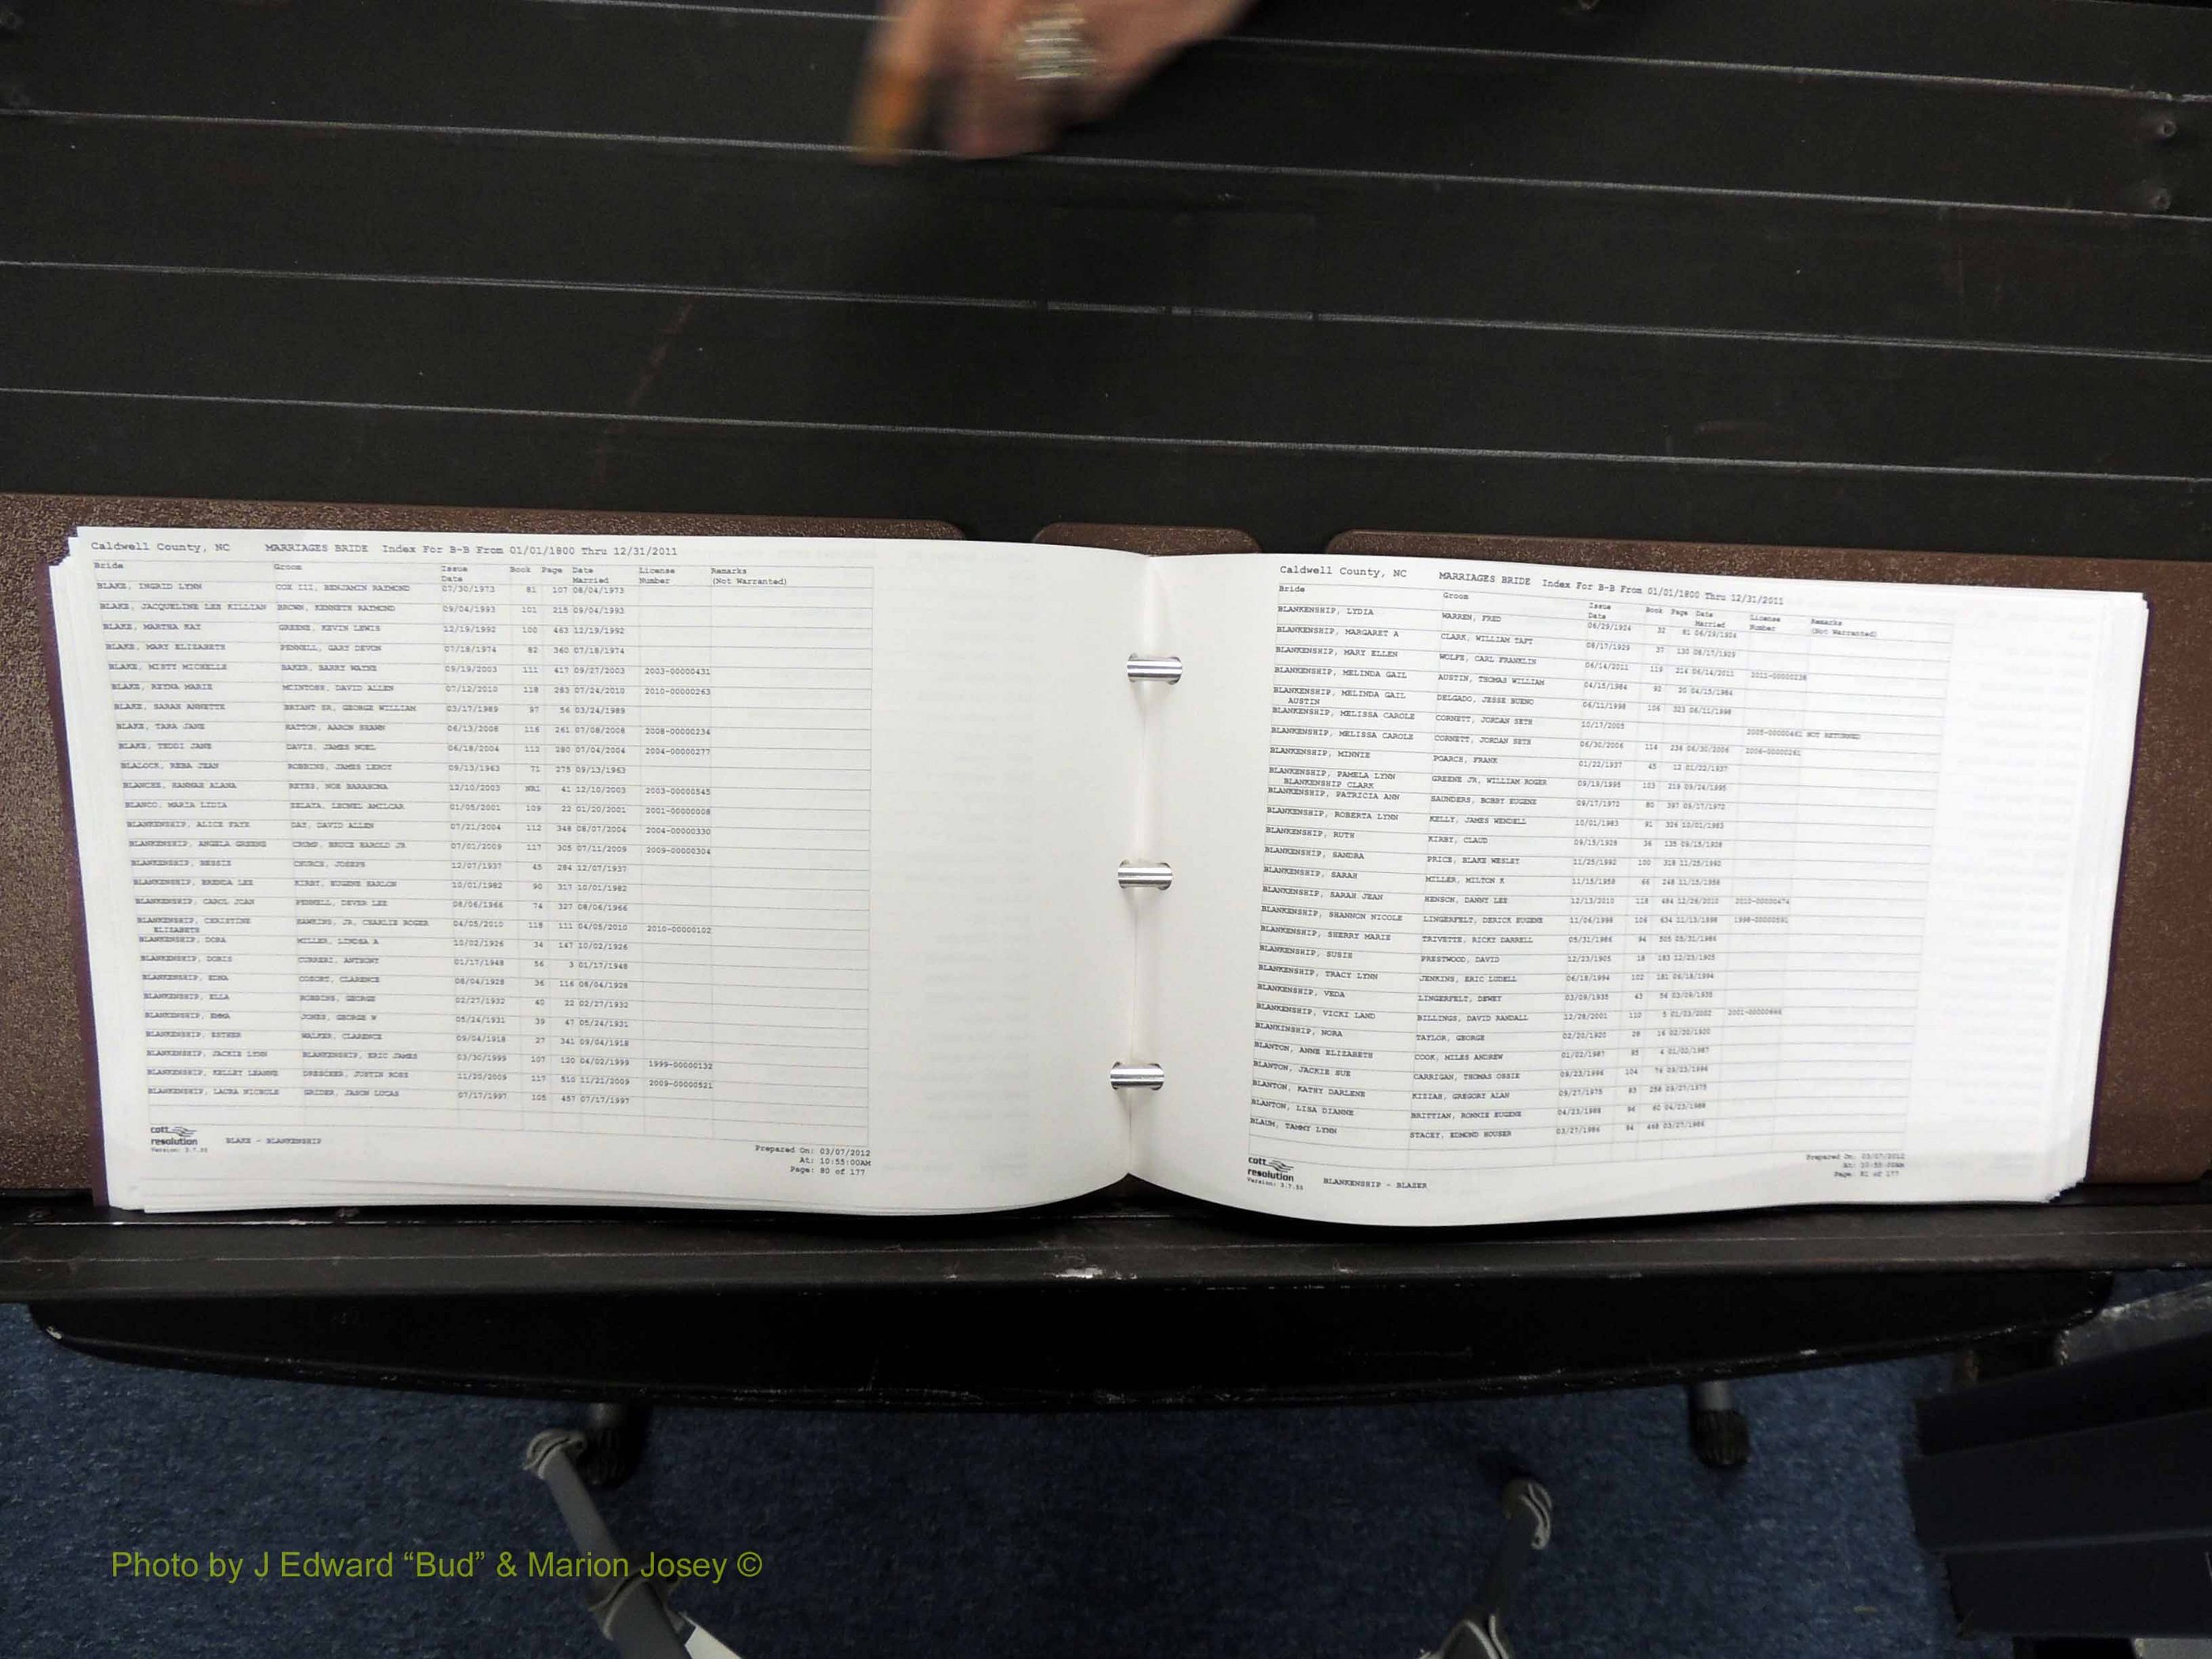 Caldwell County, NC MARRIAGES BRIDE Index For B-B From 01/01/1800 Thru 12/31/2011
Bride Groom Issue Date Book Page Date Married License Number Remarks (Not Warranted)
BLAKE, INGRID LYNN COX III, BENJAMIN RAYMOND 07/30/1973 81 107 08/04/1973
BLAKE, JACQUELINE LEE KILLIAN BROWN, KENNETH RAYMOND 09/04/1993 101 215 09/04/1993
BLAKE, MARTHA KAY GREENE, KEVIN LEWIS 12/19/1992 100 463 12/19/1992
BLAKE, MARY ELIZABETH PENNELL, GARY DEVON 07/18/1974 82 360 07/18/1974
BLAKE, MISTY MICHELLE BAKER, BARRY WAYNE 09/19/2003 111 417 09/27/2003 2003-00000431
BLAKE, REYNA MARIE MCINTOSH, DAVID ALLEN 07/12/2010 118 283 07/24/2010 2010-00000263
BLAKE, SARAH ANNETTE BRYANT SR, GEORGE WILLIAM 03/17/1989 97 56 03/24/1989
BLAKE, TARA JANE HATTON, AARON SHAWN 06/13/2008 116 261 07/08/2008 2008-00000234
BLAKE, TEDDI JANE DAVIS, JAMES NOEL 06/18/2004 112 280 07/04/2004 2004-00000277
BLALOCK, REBA JEAN ROBBINS, JAMES LEROY 09/13/1963 71 275 09/13/1963
BLANCHE, HANNAH ALANA REYES, NOE BARAHONA 12/10/2003 NR1 41 12/10/2003 2003-00000545
BLANCO, MARIA LIDIA ZELAYA, LEONEL AMILCAR 01/05/2001 109 22 01/20/2001 2001-00000008
BLANKENSHIP, ALICE FAYE DAY, DAVID ALLEN 07/21/2004 112 348 08/07/2004 2004-00000330
BLANKENSHIP, ANGELA GREENE CRUMP, BRUCE HAROLD JR 07/01/2009 117 305 07/11/2009 2009-00000304
BLANKENSHIP, BESSIE CHURCH, JOSEPH 12/07/1937 45 284 12/07/1937
BLANKENSHIP, BRENDA LEE KIRBY, EUGENE HARLON 10/01/1982 90 317 10/01/1982
BLANKENSHIP, CAROL JOAN PENNELL, DEVER LEE 08/06/1966 74 327 08/06/1966
BLANKENSHIP, CHRISTINE HAWKINS, JR, CHARLIE ROGER 04/05/2010 118 111 04/05/2010 2010-00000102
ELIZABETH
BLANKENSHIP, DORA MILLER, LINDSA A 10/02/1926 34 147 10/02/1926
BLANKENSHIP, DORIS CURRERI, ANTHONY 01/17/1948 56 3 01/17/1948
BLANKENSHIP, EDNA COZORT, CLARENCE 08/04/1928 36 116 08/04/1928
BLANKENSHIP, ELLA ROBBINS, GEORGE 02/27/1932 40 22 02/27/1932
BLANKENSHIP, EMMA JONES, GEORGE W 05/24/1931 39 47 05/24/1931
BLANKENSHIP, ESTHER WALKER, CLARENCE 09/04/1918 27 341 09/04/1918
BLANKENSHIP, JACKIE LYNN BLANKENSHIP, ERIC JAMES 03/30/1999 107 120 04/02/1999 1999-00000132
BLANKENSHIP, KELLEY LEANNE DRESCHER, JUSTIN ROSS 11/20/2009 117 510 11/21/2009 2009-00000521
BLANKENSHIP, LAURA NICHOLE GRIDER, JASON LUCAS 07/17/1997 105 457 07/17/1997
cott
resolution
Version: 3.7.55
BLAKE - BLANKENSHIP
Prepared On: 03/07/2012
At: 10:55:00AM
Page: 80 of 177
Caldwell County, NC MARRIAGES BRIDE Index For B-B From 01/01/1800 Thru 12/31/2011
Bride Groom Issue Date Book Page Date Married License Number Remarks (Not Warranted)
BLANKENSHIP, LYDIA WARREN, FRED 06/29/1924 32 81 06/29/1924
BLANKENSHIP, MARGARET A CLARK, WILLIAM TAFT 08/17/1929 37 130 08/17/1929
BLANKENSHIP, MARY ELLEN WOLFE, CARL FRANKLIN 06/14/2011 119 214 06/14/2011 2011-00000238
BLANKENSHIP, MELINDA GAIL AUSTIN, THOMAS WILLIAM 04/15/1984 92 20 04/15/1984
BLANKENSHIP, MELINDA GAIL DELGADO, JESSE BUENO 06/11/1998 106 323 06/11/1998
AUSTIN
BLANKENSHIP, MELISSA CAROLE CORNETT, JORDAN SETH 10/17/2005 2005-00000461 NOT RETURNED
BLANKENSHIP, MELISSA CAROLE CORNETT, JORDAN SETH 06/30/2006 114 236 06/30/2006 2006-00000261
BLANKENSHIP, MINNIE POARCH, FRANK 01/22/1937 45 12 01/22/1937
BLANKENSHIP, PAMELA LYNN GREENE JR, WILLIAM ROGER 09/19/1995 103 219 09/24/1995
BLANKENSHIP CLARK
BLANKENSHIP, PATRICIA ANN SAUNDERS, BOBBY EUGENE 09/17/1972 80 397 09/17/1972
BLANKENSHIP, ROBERTA LYNN KELLY, JAMES WENDELL 10/01/1983 91 326 10/01/1983
BLANKENSHIP, RUTH KIRBY, CLAUD 09/15/1928 36 135 09/15/1928
BLANKENSHIP, SANDRA PRICE, BLAKE WESLEY 11/25/1992 100 318 11/25/1992
BLANKENSHIP, SARAH MILLER, MILTON K 11/15/1958 66 248 11/15/1958
BLANKENSHIP, SARAH JEAN HENSON, DANNY LEE 12/13/2010 118 484 12/28/2010 2010-00000474
BLANKENSHIP, SHANNON NICOLE LINGERFELT, DERICK EUGENE 11/06/1998 106 634 11/15/1998 1998-00000591
BLANKENSHIP, SHERRY MARIE TRIVETTE, RICKY DARRELL 05/31/1986 94 505 05/31/1986
BLANKENSHIP, SUSIE PRESTWOOD, DAVID 12/23/1905 18 183 12/23/1905
BLANKENSHIP, TRACY LYNN JENKINS, ERIC LUDELL 06/18/1994 102 181 06/18/1994
BLANKENSHIP, VEDA LINGERFELT, DEWEY 03/09/1935 43 56 03/09/1935
BLANKENSHIP, VICKI LAND BILLINGS, DAVID RANDALL 12/28/2001 110 5 01/03/2002 2001-00000686
BLANKINSHIP, NORA TAYLOR, GEORGE 02/20/1920 28 16 02/20/1920
BLANTON, ANNE ELIZABETH COOK, MILES ANDREW 01/02/1987 95 4 01/02/1987
BLANTON, JACKIE SUE CARRIGAN, THOMAS OSSIE 09/23/1996 104 76 09/23/1996
BLANTON, KATHY DARLENE KIZIAH, GREGORY ALAN 09/27/1975 83 258 09/27/1975
BLANTON, LISA DIANNE BRITTIAN, RONNIE EUGENE 04/23/1988 96 60 04/23/1988
BLAUM, TAMMY LYNN STACEY, EDMOND HOUSER 03/27/1986 94 448 03/27/1986
cott
resolution
Version: 3.7.55
BLANKENSHIP - BLAZER
Prepared On: 03/07/2012
At: 10:55:00AM
Page: 81 of 177
Photo by J Edward “Bud” & Marion Josey ©